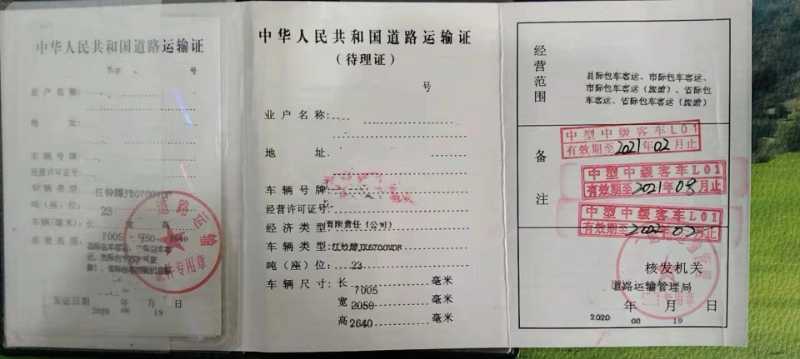 中华人民共和国道路运输证
号
业户名称
地址
车辆号牌
车辆类型
吨(座)位: 23
车辆(毫米) 长 宽 高
7005
经营范围
发证日期 年 月 日
2020 08 19
中华人民共和国道路运输证
(待理证)
号
业户名称
地址
车辆号牌
经营许可证号
经济类型 有限责任(公司)
车辆类型
吨(座)位: 23
车辆尺寸: 长 7005 毫米
宽 2050 毫米
高 2640 毫米
经营范围
县际包车客运、市际包车客运、
市际包车客运(旅游)、省际包
车客运、省际包车客运(旅游)
备注
中型中级客车L01
有效期至2021年02月止
中型中级客车L01
有效期至2021年08月止
中型中级客车L01
有效期至2022年02月止
核发机关
道路运输管理局
年 月 日
2020 08 19